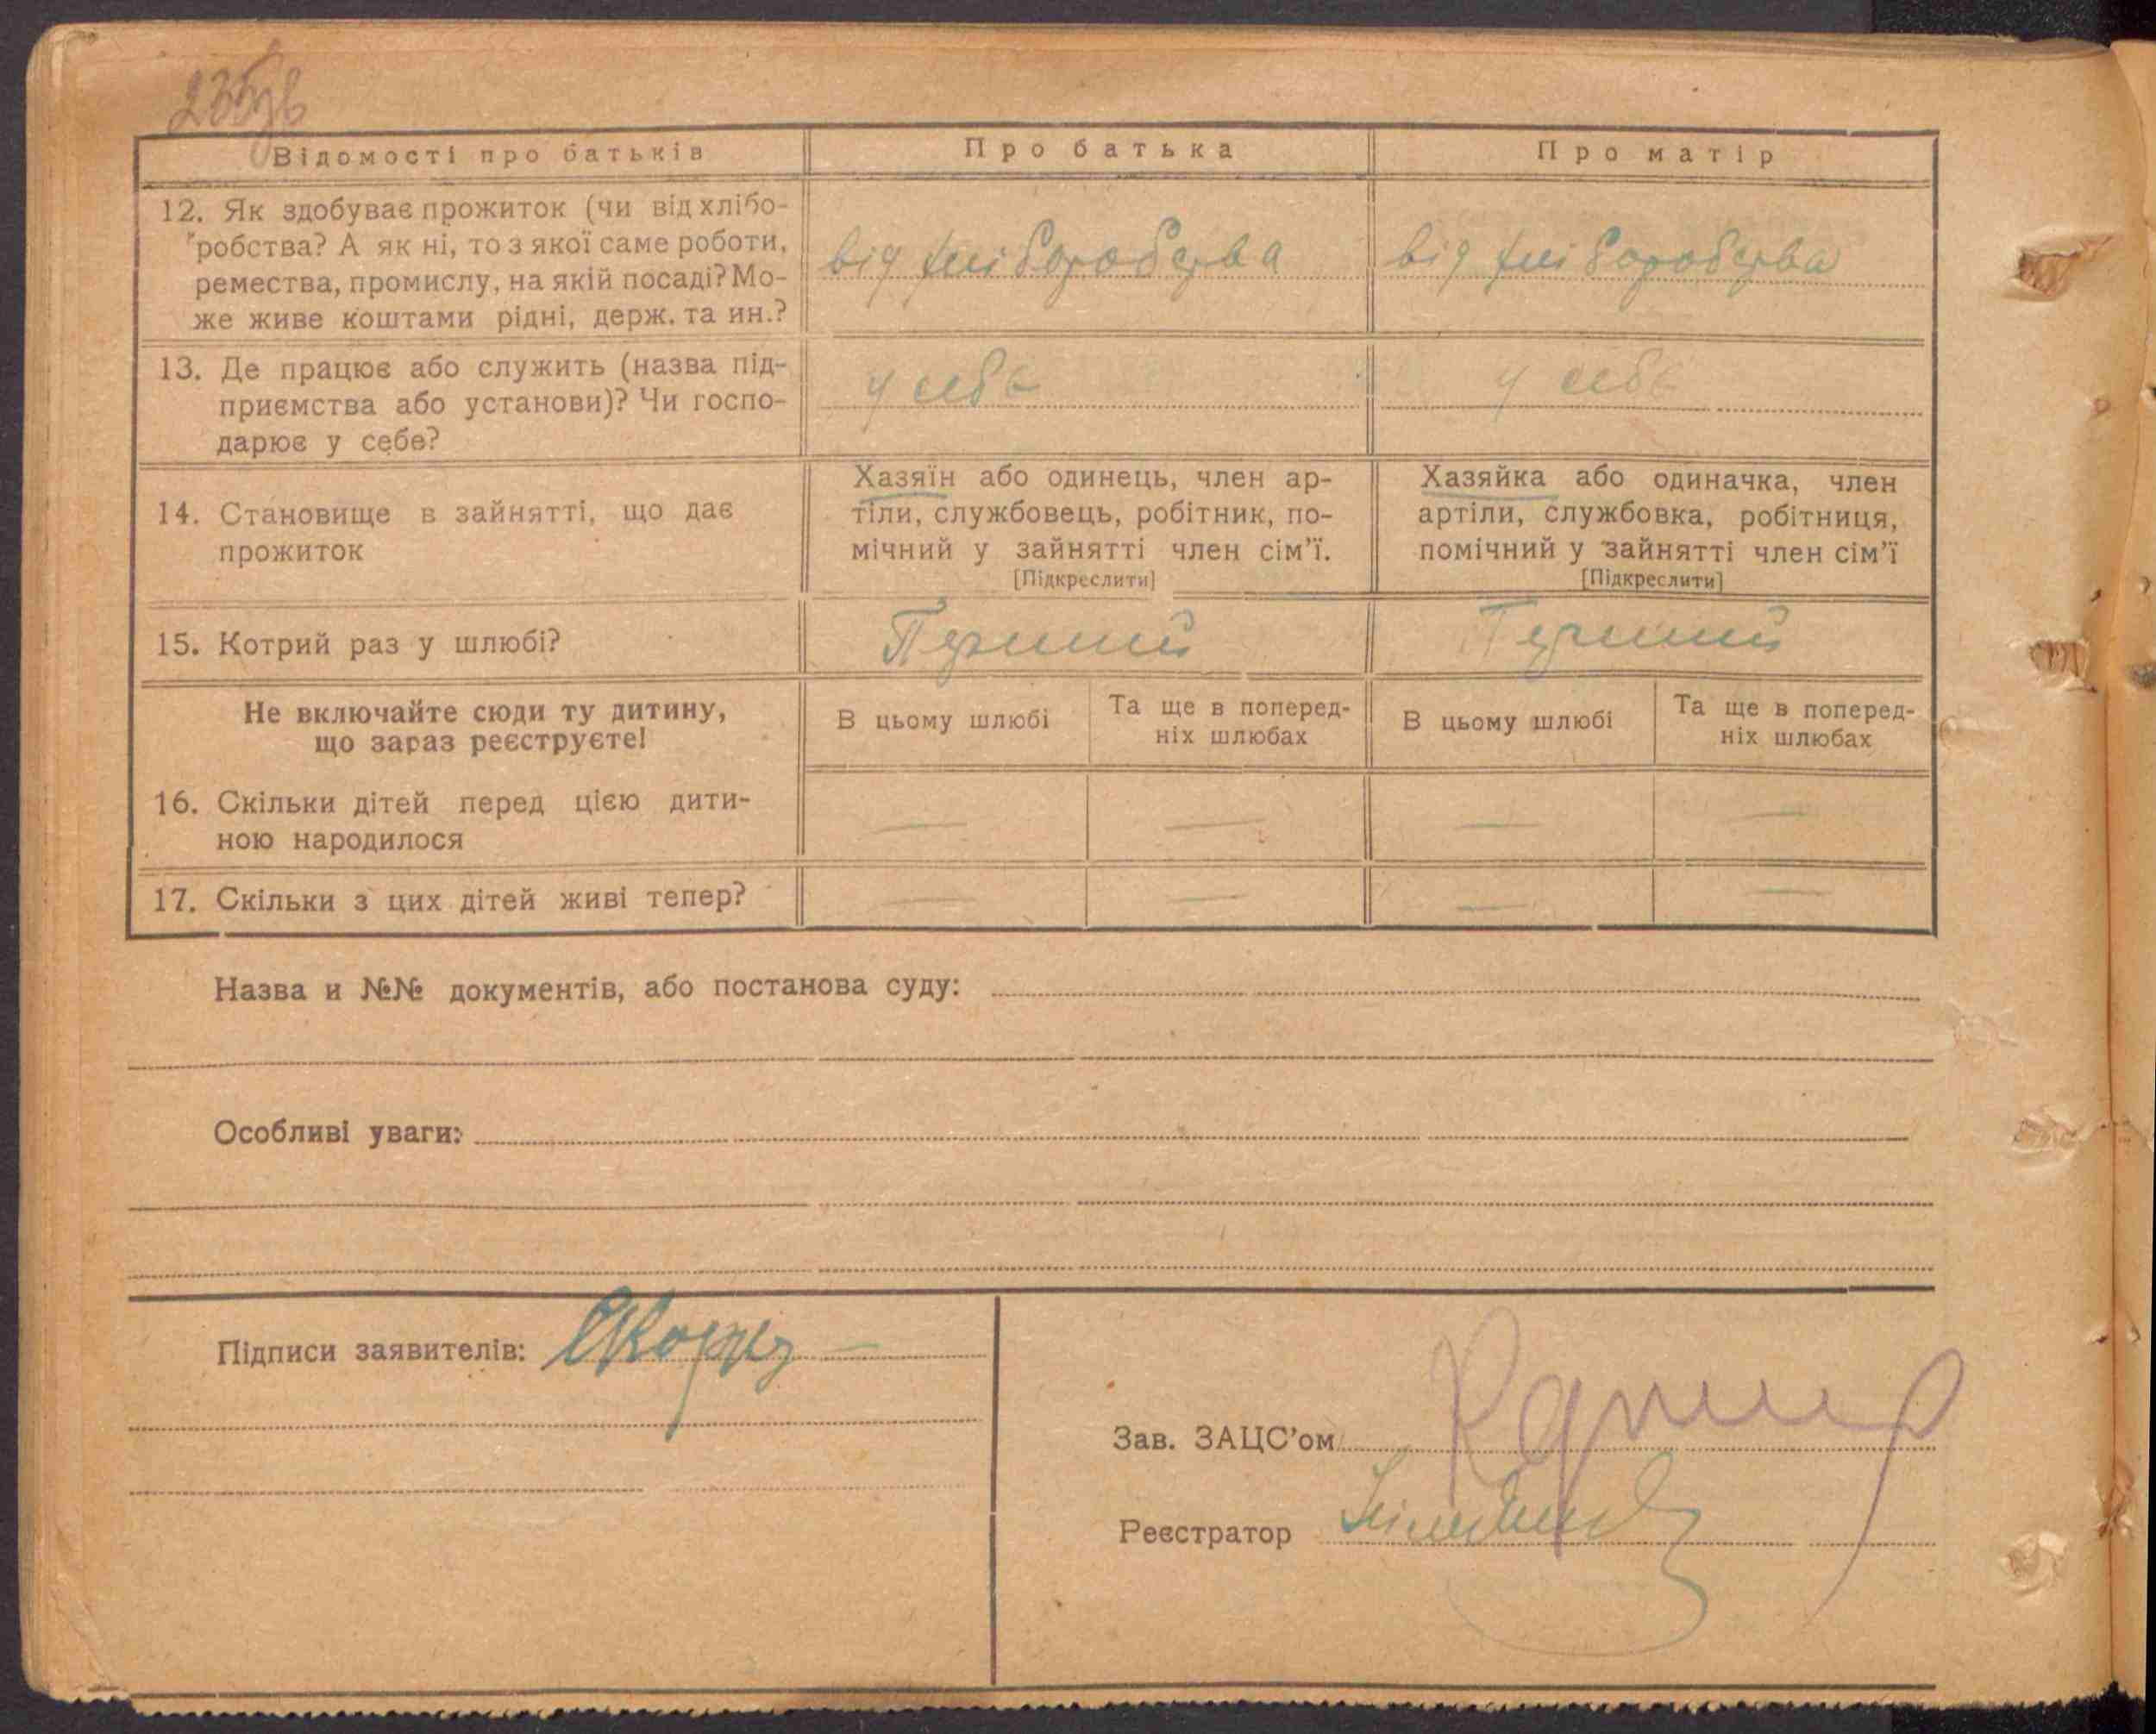 Відомості про батьків
Про батька
Про матір
12. Як здобуває прожиток (чи від хлібо-
робства? А як ні, то з якої саме роботи,
ремества, промислу, на якій посаді? Мо-
же живе коштами рідні, держ. та ин.?
від хліборобства
від хліборобства
13. Де працює або служить (назва під-
приємства або установи)? Чи госпо-
дарює у себе?
у себе
у себе
14. Становище в зайнятті, що дає
прожиток
Хазяїн або одинець, член ар-
тіли, службовець, робітник, по-
мічний у зайнятті член сім'ї.
[Підкреслити]
Хазяйка або одиначка, член
артіли, службовка, робітниця,
помічний у зайнятті член сім'ї
[Підкреслити]
15. Котрий раз у шлюбі?
Перший
Перший
Не включайте сюди ту дитину,
що зараз реєструєте!
В цьому шлюбі
Та ще в поперед-
ніх шлюбах
В цьому шлюбі
Та ще в поперед-
ніх шлюбах
16. Скільки дітей перед цією дити-
ною народилося
— — — —
17. Скільки з цих дітей живі тепер?
— — — —
Назва и №№ документів, або постанова суду:
Особливі уваги:
Підписи заявителів:
Зав. ЗАЦС'ом
Реєстратор